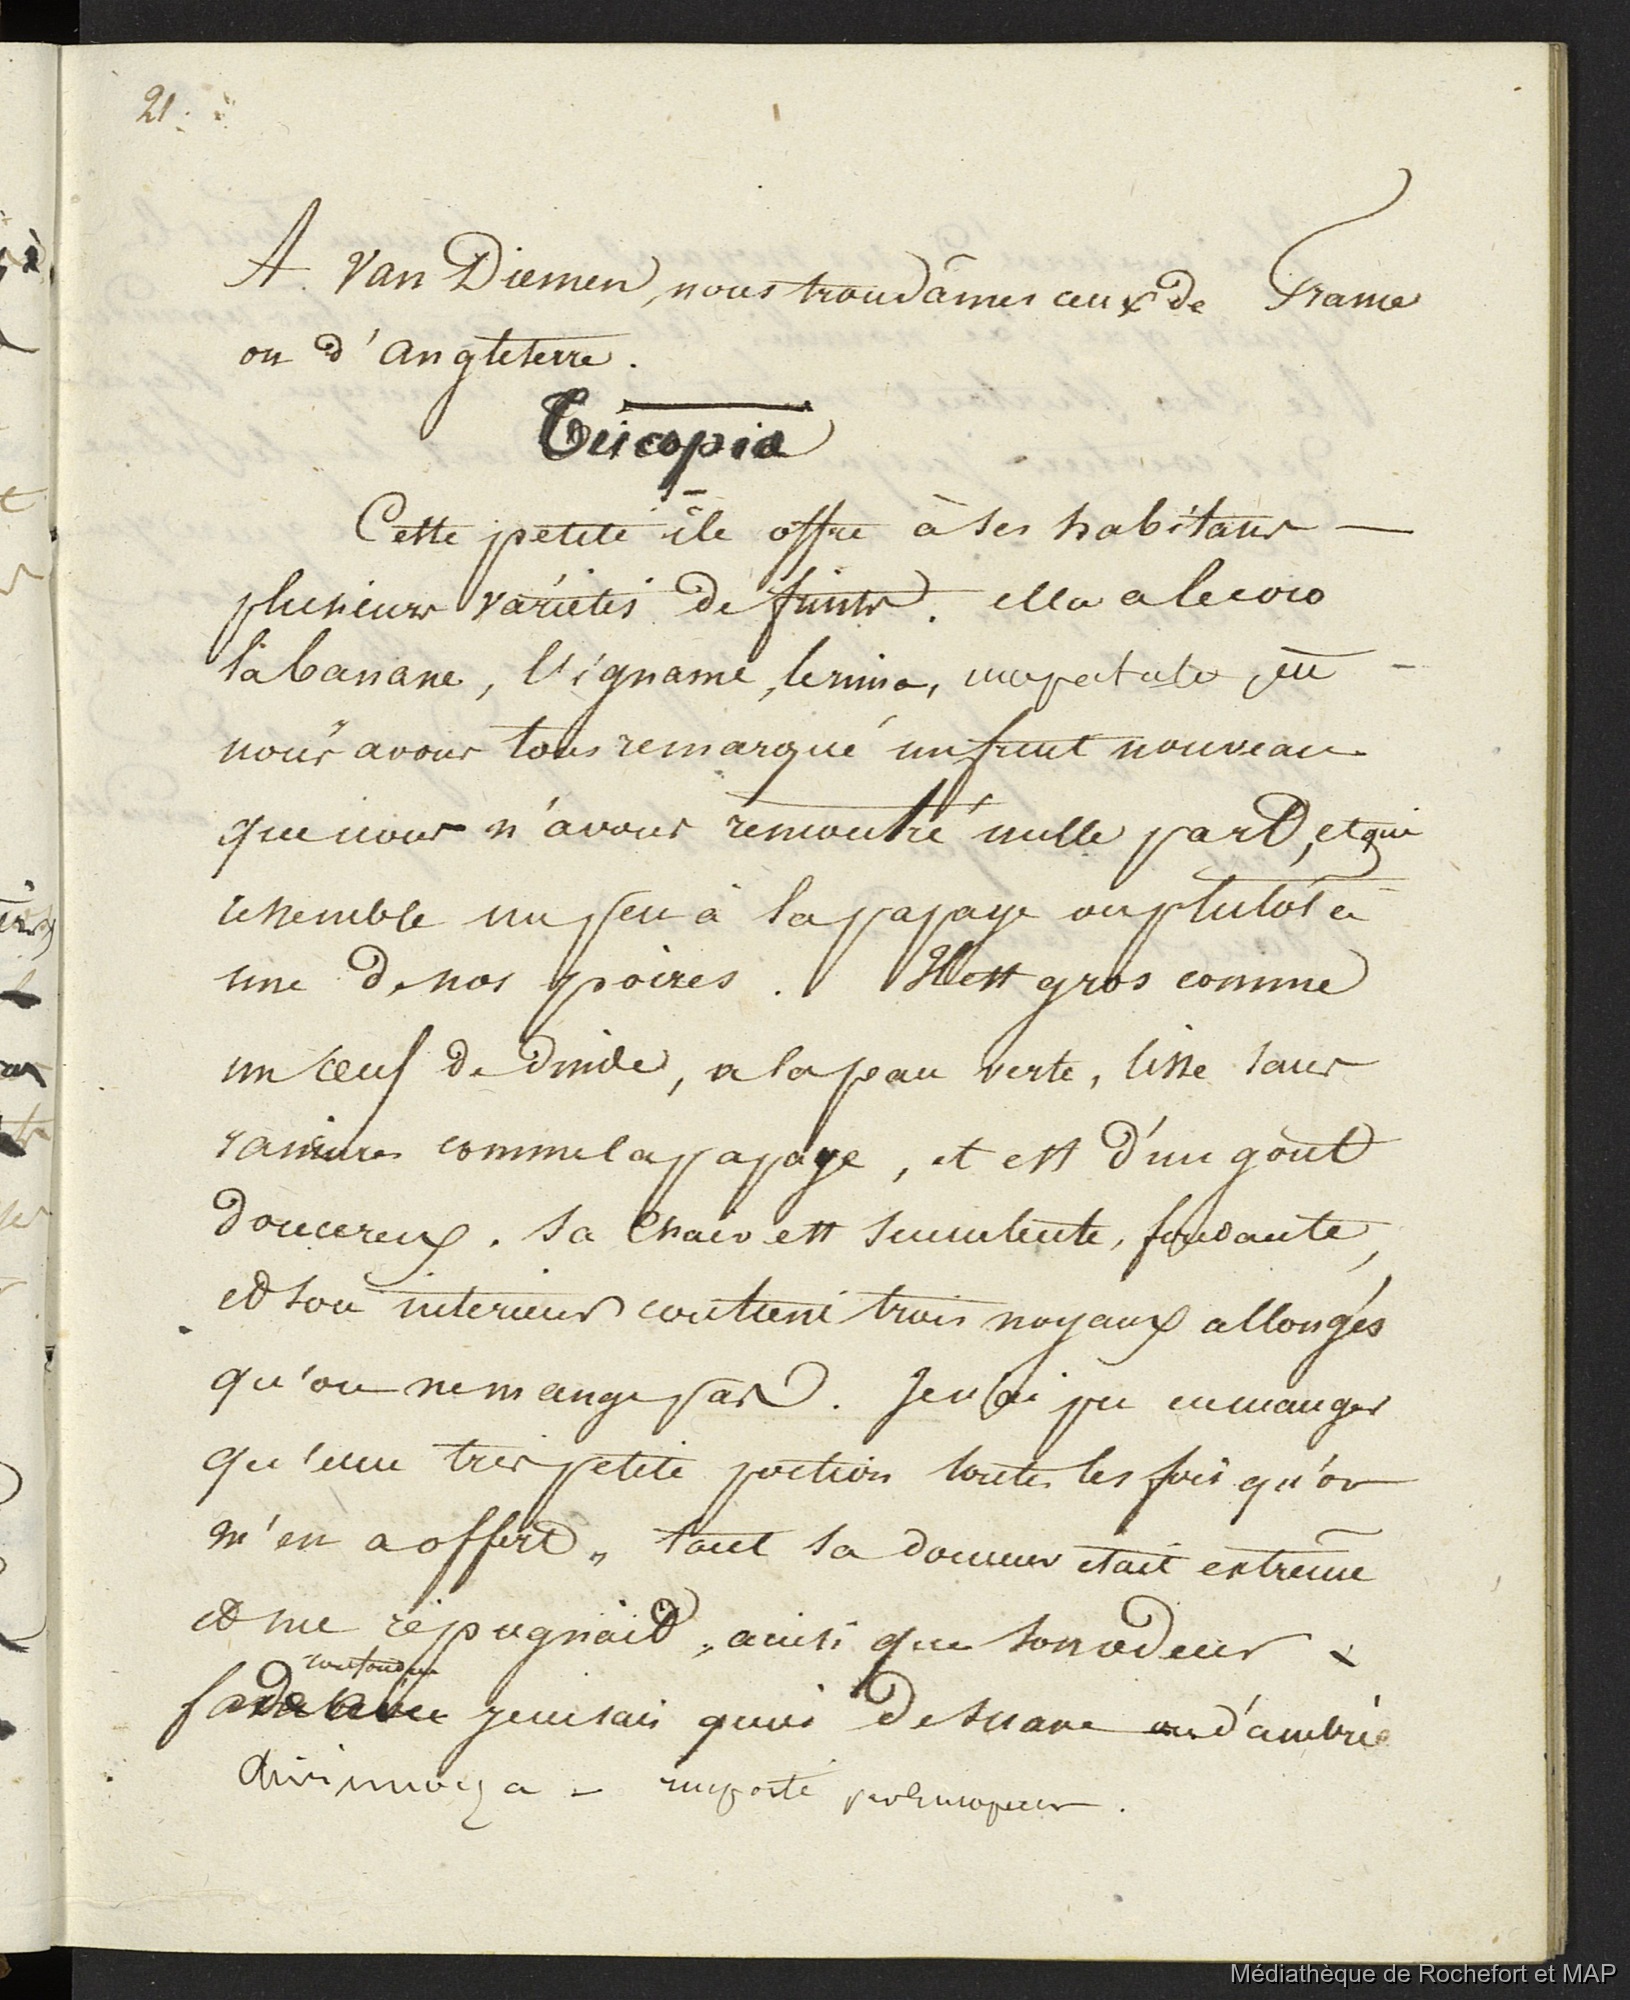 21.
A Van Diemen, nous trouvâmes ceux de France
ou d'angleterre.
Tucopia
Cette petite île offre à ses habitans —
plusieurs variétés de fruits. elle a le coco
la banane, l'igname, le
nous avons tous remarqué un fruit nouveau
que nous n'avons rencontré nulle part, et qui
ressemble un peu à la papaye ou plutôt à
une de nos poires. Il est gros comme
un œuf de dinde, a la peau verte, lisse sans
rainures comme la papaye, et est d'un goût
doucereux. sa chair est succulente, fondante,
et son interieur contient trois noyaux allongés
qu'on ne mange pas. Je n'ai pu en manger
qu'une très petite portion toutes les fois qu'on
m'en a offert, tant sa douceur était extrême
et me répugnait, ainsi que son odeur
fade je ne sais quoi de suave ou d'ambré
importé
Médiathèque de Rochefort et MAP